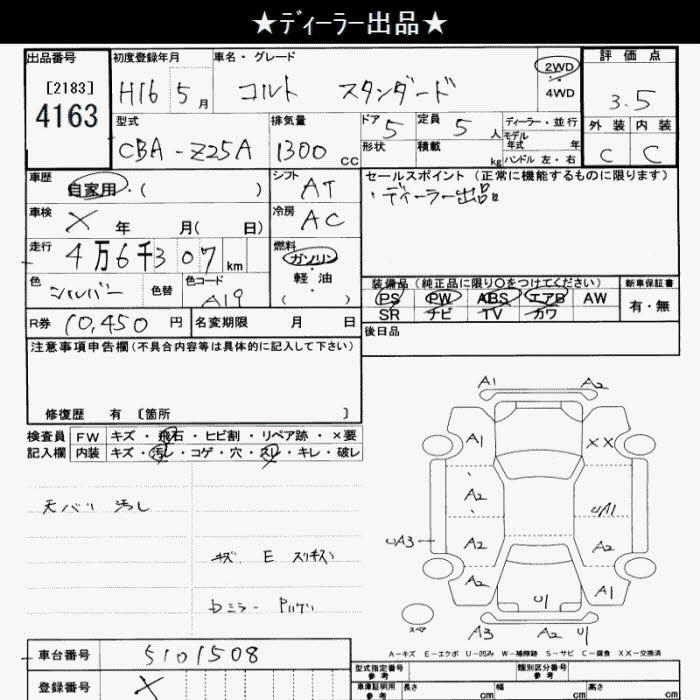 ★ディーラー出品★
出品番号
[2183]
4163
初度登録年月
H16 5月
車名・グレード
コルト スタンダード
2WD
4WD
評価点
3.5
外装 内装
C C
型式
CBA-Z25A
排気量
1300 CC
ドア 5
形状
定員 5 人
積載 kg
ディーラー・並行
モデル年式 年
ハンドル 左・右
車歴
自家用・( )
シフト AT
車検 X 年 月( 日)
冷房 AC
走行 4万6千307 km
燃料
ガソリン
軽油
( )
色 シルバー 色替
色コード A19
R券 10,450 円
名変期限 月 日
セールスポイント(正常に機能するものに限ります)
・ディーラー出品
装備品(純正品に限り〇をつけてください)
PS PW ABS エアB AW
SR ナビ TV カワ
新車保証書
有・無
後日品
注意事項申告欄(不具合内容等は具体的に記入して下さい)
修復歴 有 [箇所 ]
検査員記入欄
FW キズ・飛石・ヒビ割・リペア跡・×要
内装 キズ・汚レ・コゲ・穴・スレ・キレ・破レ
天バリ 汚レ
キズ E スリキズ
A1 A2
A1 XX
A2 UA1
UA3 A2 A2
A2 A1
U1
スペア
A3 A2 U1
A-キズ E-エクボ U-凹み W-補修跡 S-サビ C-腐食 XX-交換済
車台番号 5101508
登録番号 X
型式指定番号 参考
類別区分番号 参考
車庫証明用 参考
長さ cm
幅 cm
高さ cm